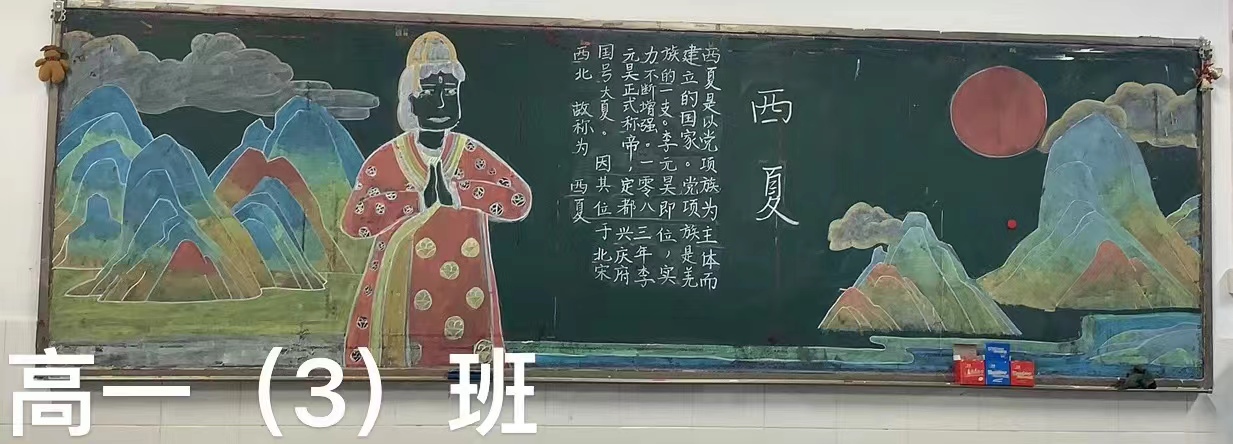 西夏
西夏是以党项族为主体而
建立的国家。党项族是羌
族的一支。李元昊即位，实
力不断增强。一零八三年李
元昊正式称帝，定都兴庆府
国号大夏。因其位于北宋
西北 故称为 西夏
高一（3）班